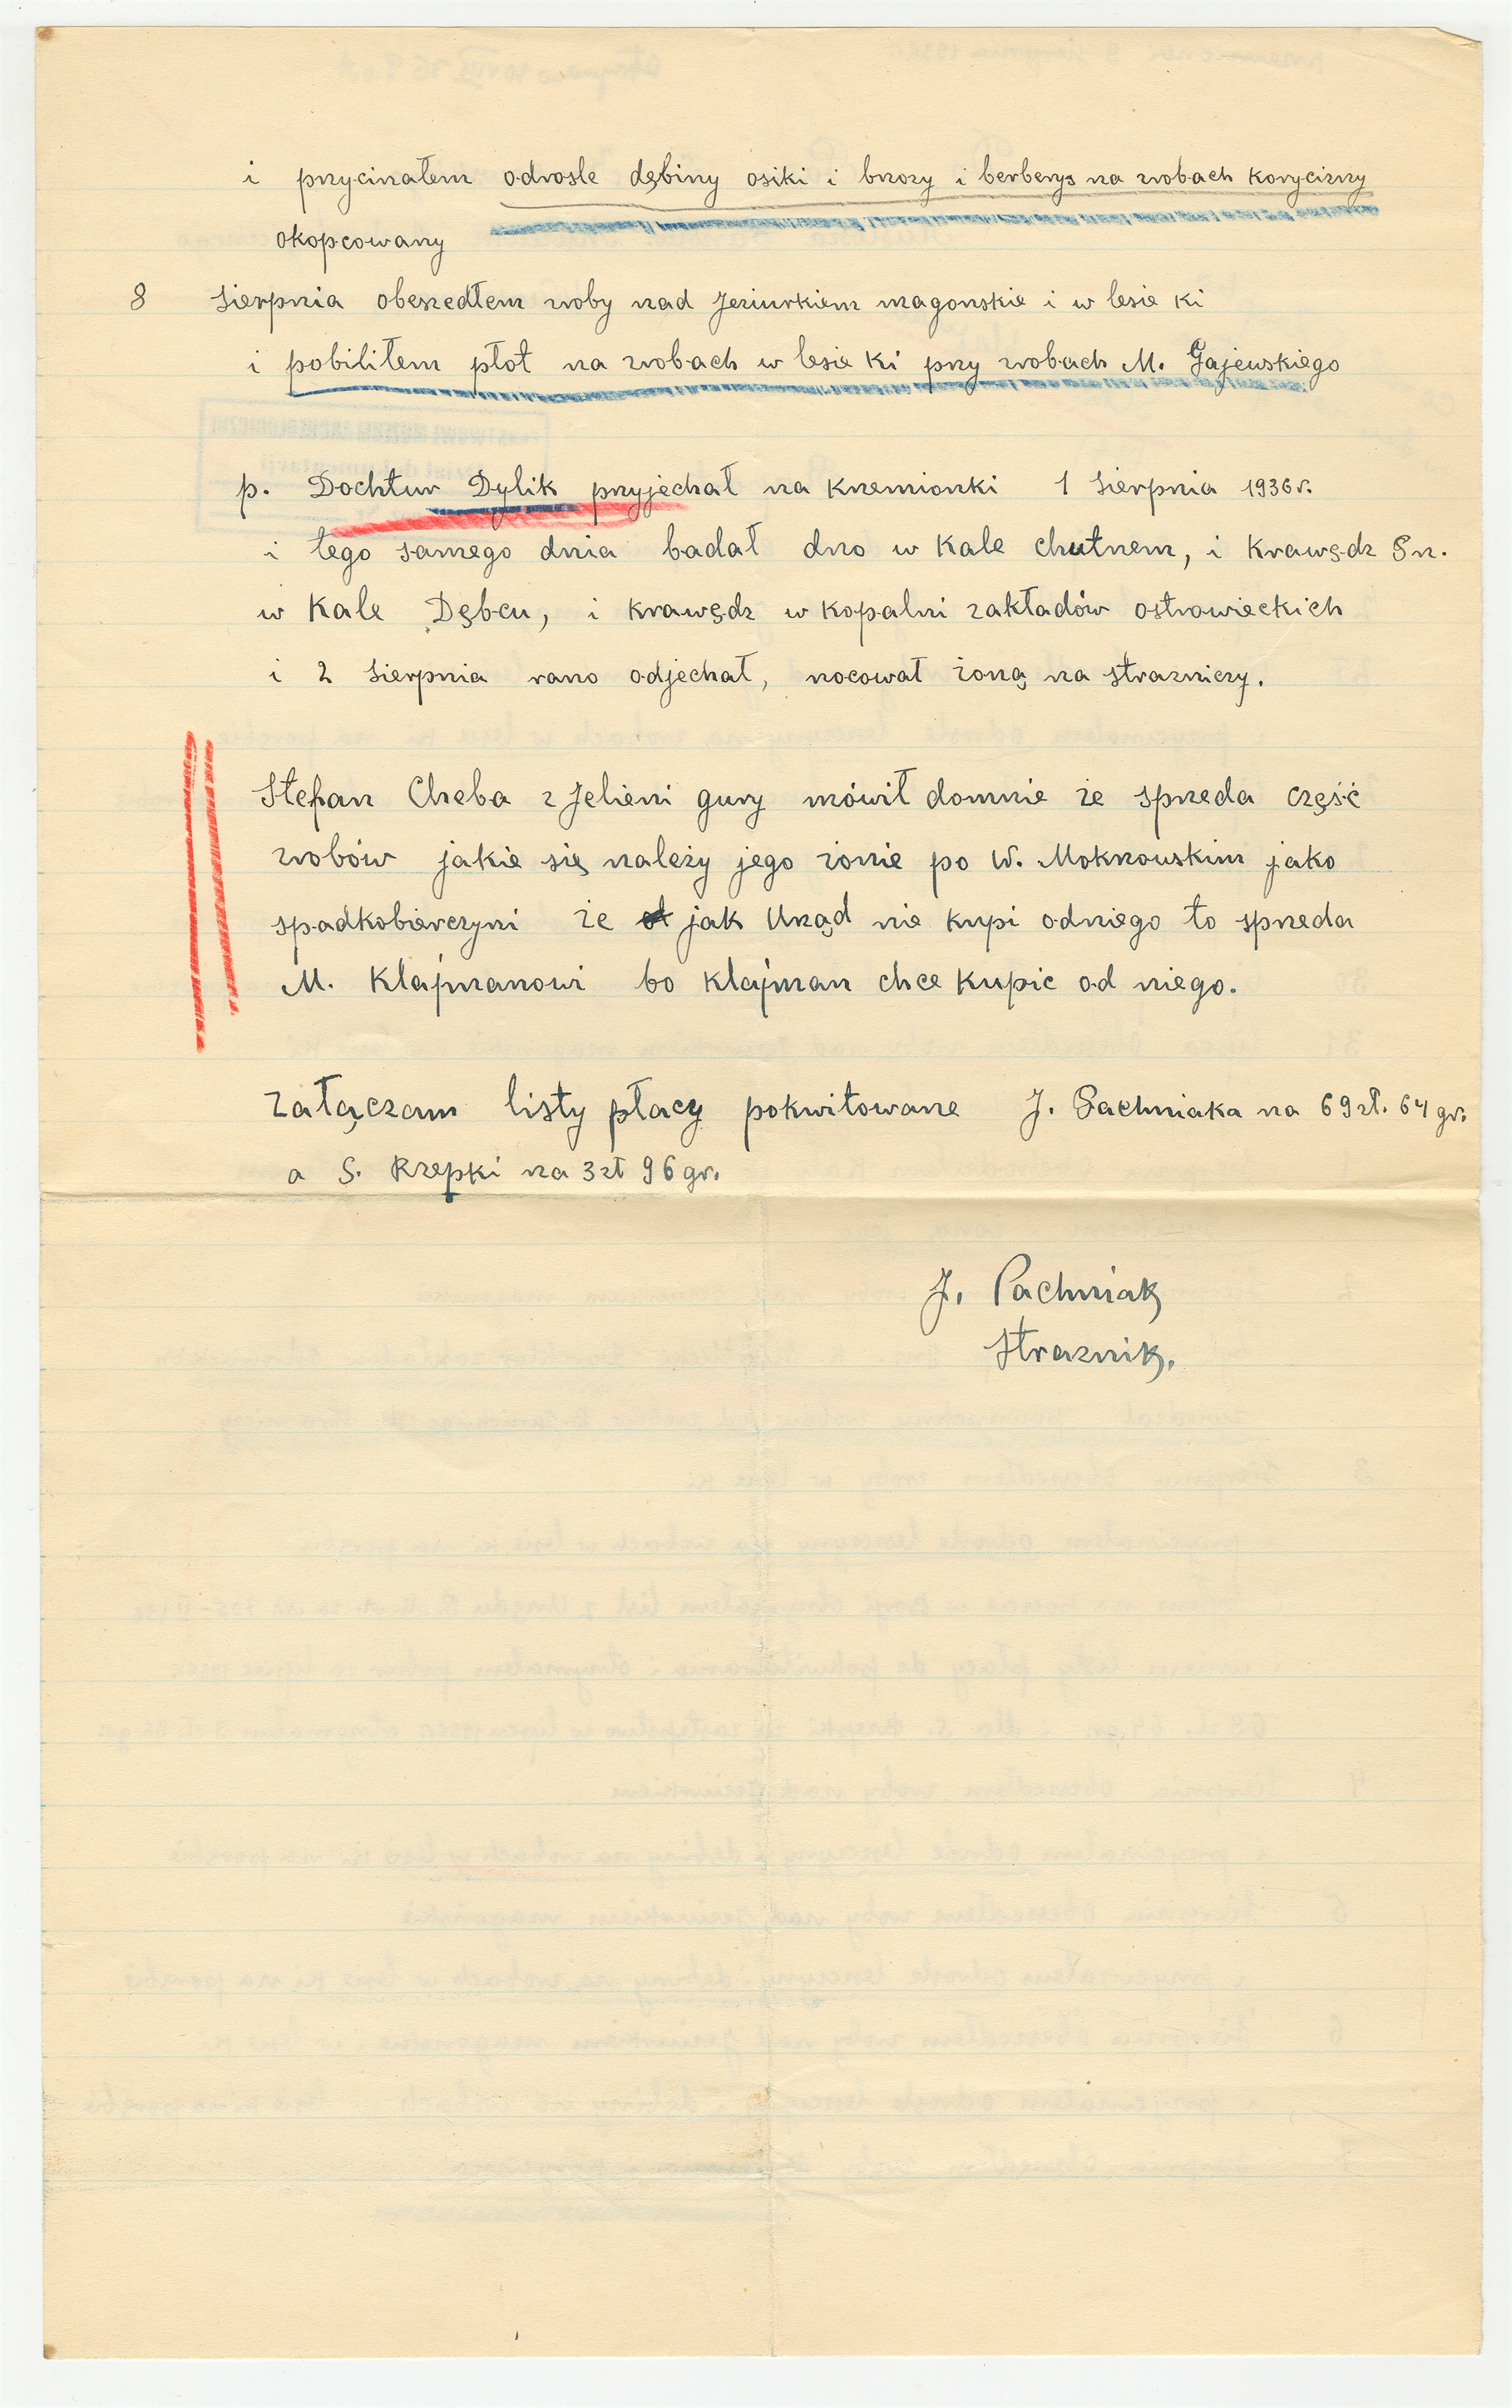 i przycinałem odrosle dębiny osiki i brzozy i berberys na robach korycizny
okopcowany
8 Sierpnia obeszedłem roby nad Jeziurkiem magonskie i w lesie ki
i pobiliłem płot na robach w lesie ki przy robach M. Gajewskiego
p. Dochtur Dylik przyjechał na Krzemionki 1 Sierpnia 1936 r.
i tego samego dnia badał dno w Kale chutnem, i Krawędz Sn.
w Kale Dębcu, i krawędz w kopalni zakładów ostrowieckich
i 2 Sierpnia rano odjechał, nocował żoną na strazniczy.
Stefan Cheba z Jelieni gury mówił domnie że sprzeda część
robów jakie się należy jego żonie po W. Mokrzouskim jako
spadkobierczyni że jak Urząd nie kupi odniego to sprzeda
M. Klajmanowi bo klajman chce kupic od niego.
załączam listy płacy pokwitowane J. Pachniaka na 69 zł. 64 gr.
a S. Rzepki na 3 zł 96 gr.
J. Pachniak
Straznik.